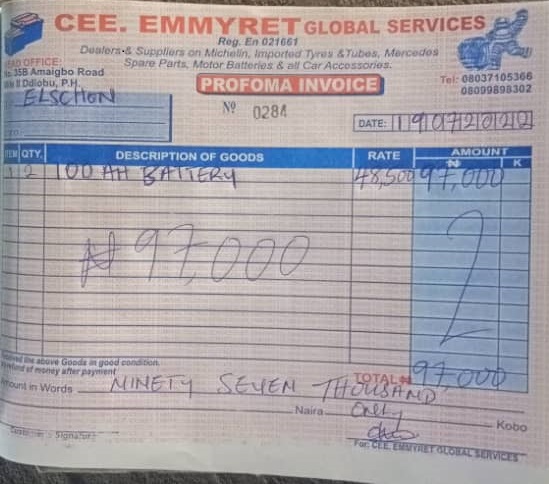 CEE. EMMYRET GLOBAL SERVICES
Reg. En 021661
Dealers & Suppliers on Michelin, Imported Tyres & Tubes, Mercedes
Spare Parts, Motor Batteries & all Car Accessories.
HEAD OFFICE:
No. 35B Amaigbo Road
Mile II Ddiobu, P.H.
Tel: 08037105366
08099898302
PROFOMA INVOICE
ELSCHON
Nº 0284
DATE: 19072022
ITEM QTY. DESCRIPTION OF GOODS RATE AMOUNT
₦ K
1 2 100 AH BATTERY 48,500 97,000
₦97,000
the above Goods in good condition.
refund of money after payment
TOTAL ₦ 97,000
Amount in Words NINETY SEVEN THOUSAND
Naira Only Kobo
Customer's Signature
For: CEE. EMMYRET GLOBAL SERVICES